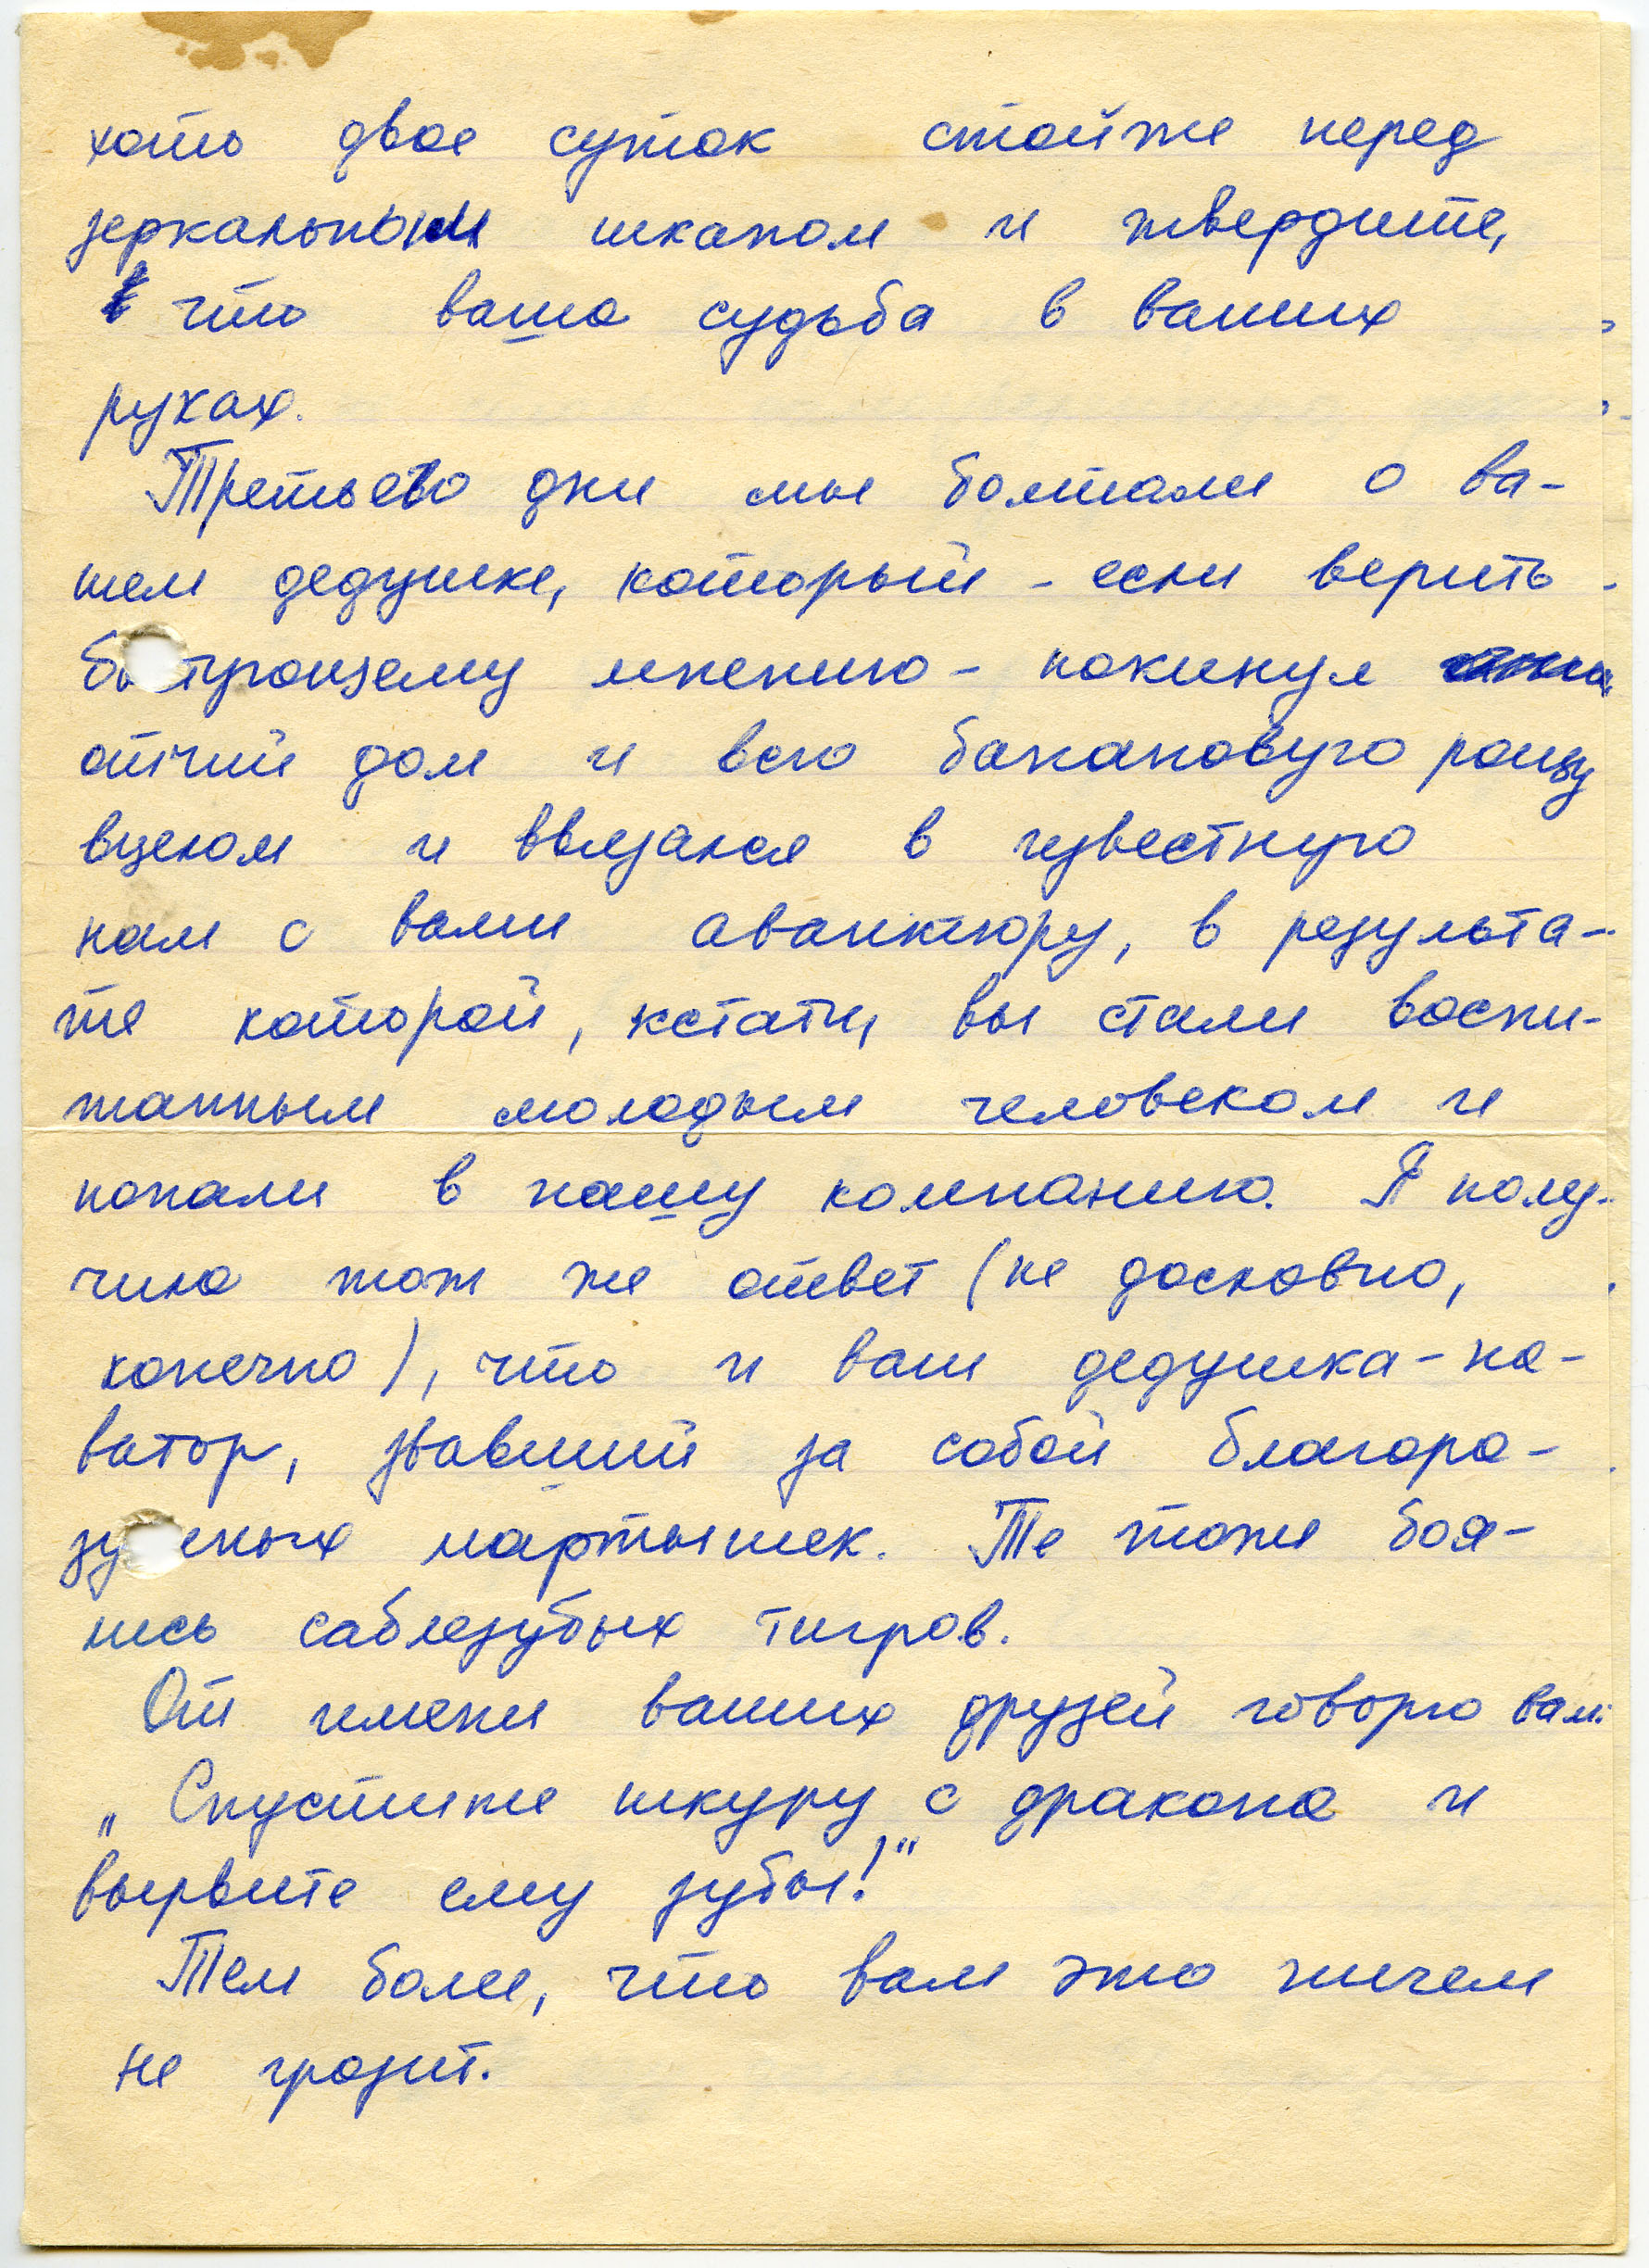 хоть двое суток стойте перед
зеркальным шкапом и твердите,
что ваша судьба в ваших
руках.
Третьего дни мы болтали о ва-
шем дедушке, который - если верить
быстроидему мнению - покинул
отчий дом и всю банановую рощу
вцелом и ввязался в известную
нам с вами авантюру, в результа-
те которой, кстати, вы стали воспи-
танным молодым человеком и
попали в нашу компанию. Я полу-
чила тот же ответ (не дословно,
конечно), что и ваш дедушка-но-
ватор, звавший за собой благора-
зумных мартышек. Те тоже боя-
лись саблезубых тигров.
От имени ваших друзей говорю вам:
„Спустите шкуру с дракона и
вырвите ему зубы!“
Тем более, что вам это ничем
не грозит.